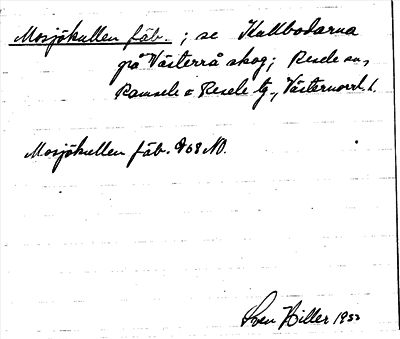 Mosjökullen fäb. ; se Kullbodarna
på Västerrå skog; Resele sn,
Ramsele o Resele tg., Västernorrl. l.
Mosjökullen fäb. 868 NO.
Sven Hiller 1953